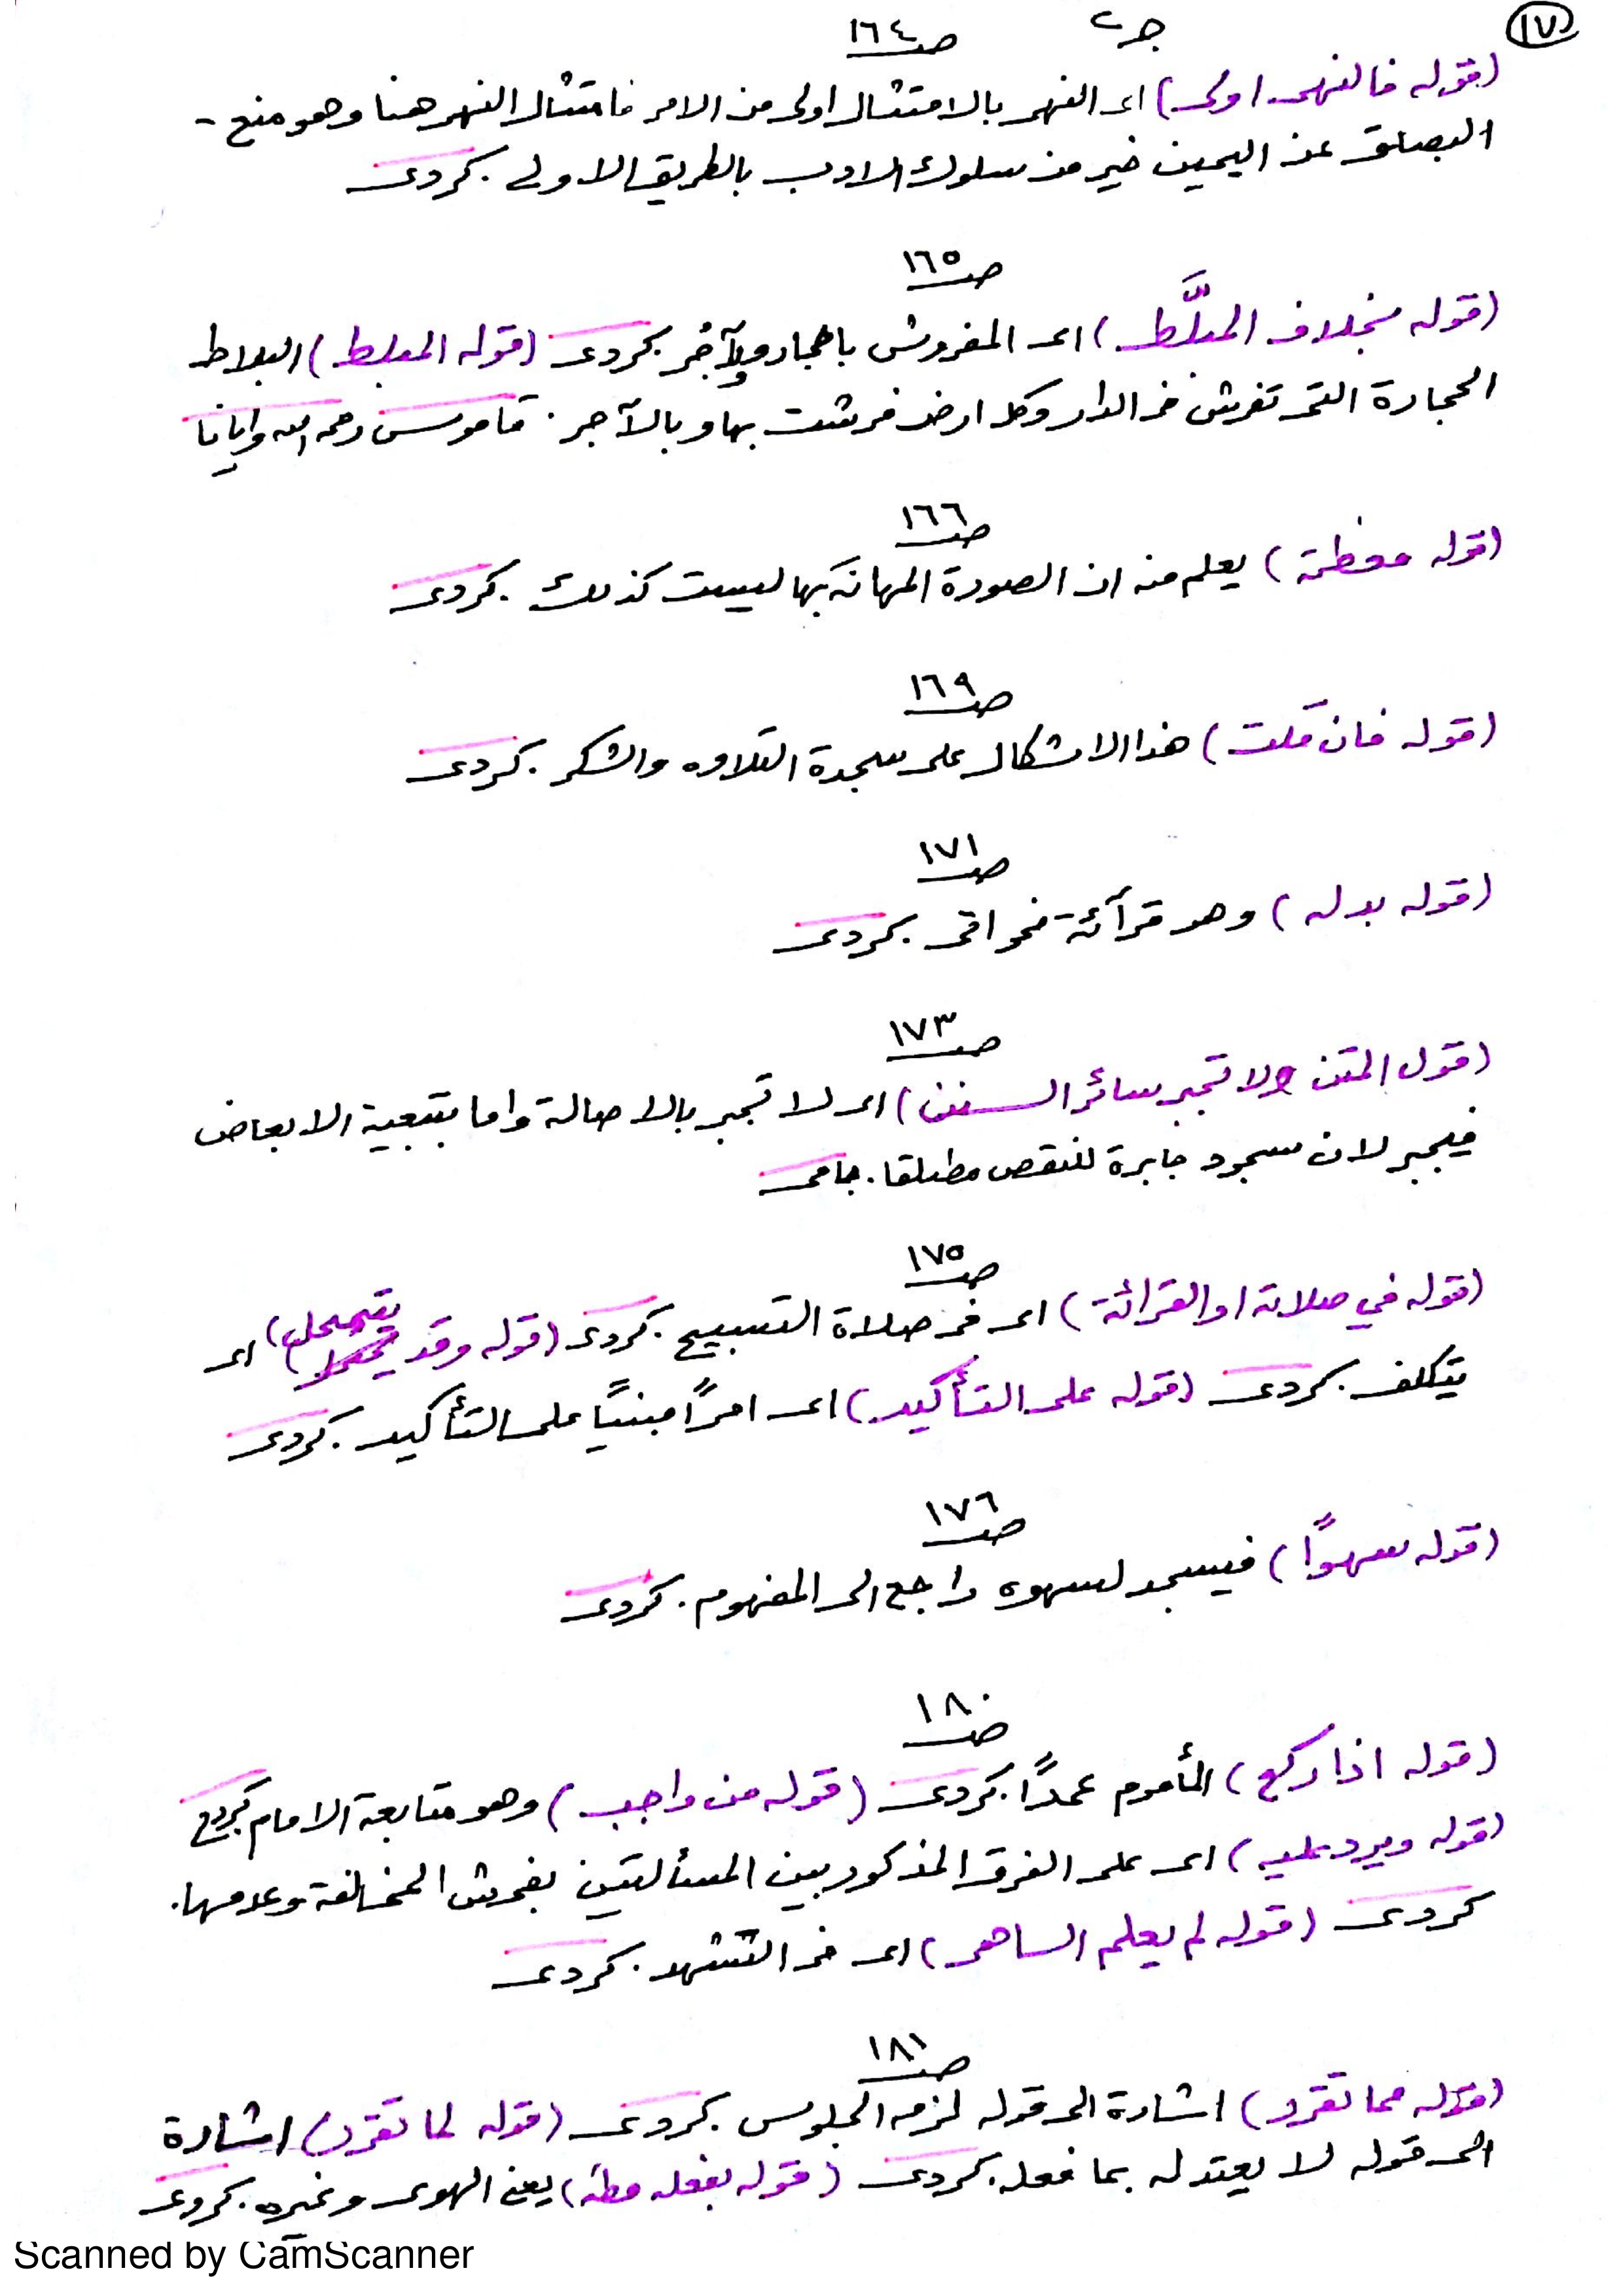 ١٧
ج ٢
صـ ١٦٤
(قوله فالنهى اولى) اى النهى بالامتثال اولى من الامر فامتثال النهى هنا وهو منع -
البصاق عن اليمين خير من سلوك الادب بالطريق الاولى . كردى
صـ ١٦٥
(قوله بخلاف المبلَّط) اى المفروش باحجار ولآجر . كردى (قوله المبلط) البلاط
الحجارة التى تفرش فى الدار وكل ارض فرشت بها وبالآجر . قاموس رحمه الله وايانا
صـ ١٦٦
(قوله معظمة) يعلم منه ان الصورة المهانة بها ليست كذلك . كردى
صـ ١٦٩
(قوله فان قلت) هذا الاشكال على سجدة التلاوه والشكر . كردى
صـ ١٧١
(قوله بدله) وهو قرآئة نحو اقى . كردى
صـ ١٧٣
(قول المتن ولا تجبر سائر السنن) اى لا تجبر بالاصالة واما بتبعية الابعاض
فيجبر لان سجود جابرة للنقص مطلقا . جامى
صـ ١٧٥
(قوله في صلاته او القرائة) اى فى صلاة التسبيح . كردى (قوله وقد يتمحل) اى
يتكلف . كردى (قوله على التأكيد) اى امرًا مبنيًا على التأكيد . كردى
صـ ١٧٦
(قوله سهوًا) فيسجد لسهوه راجع الى المفهوم . كردى
صـ ١٨٠
(قوله اذا ركع) المأموم عمدًا . كردى (قوله من واجب) وهو متابعة الامام كردى
(قوله ويرد عليه) اى على الفرق المذكور بين المسألتين بفحش المخالفة وعدمها .
كردى (قوله لم يعلم الساهى) اى فى التشهد . كردى
صـ ١٨١
(قوله مما تقرر) اشارة الى قوله لزمه الجلوس . كردى (قوله لما تقرر) اشارة
الى قوله لا يعتد له بما فعله . كردى (قوله بفعله مظنه) يعنى الهوى وغيره . كردى
Scanned by CamScanner